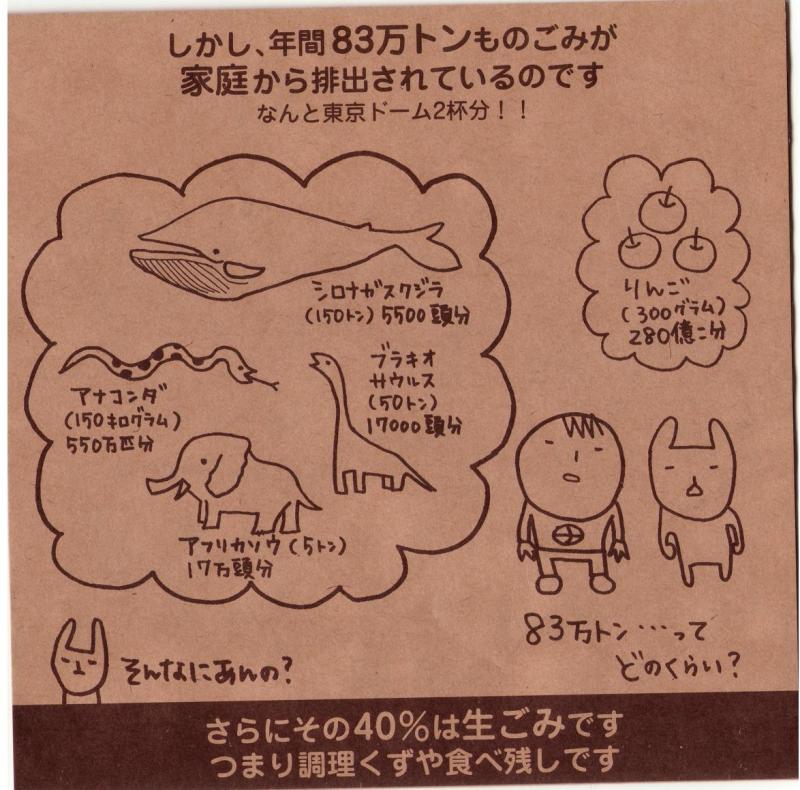 しかし、年間83万トンものごみが
家庭から排出されているのです
なんと東京ドーム2杯分！！
シロナガスクジラ
(150トン) 5500頭分
りんご
(300グラム)
280億コ分
アナコンダ
(150キログラム)
550万匹分
ブラキオ
サウルス
(50トン)
17000頭分
アフリカゾウ (5トン)
17万頭分
83万トン…って
どのくらい?
そんなにあんの?
さらにその40%は生ごみです
つまり調理くずや食べ残しです